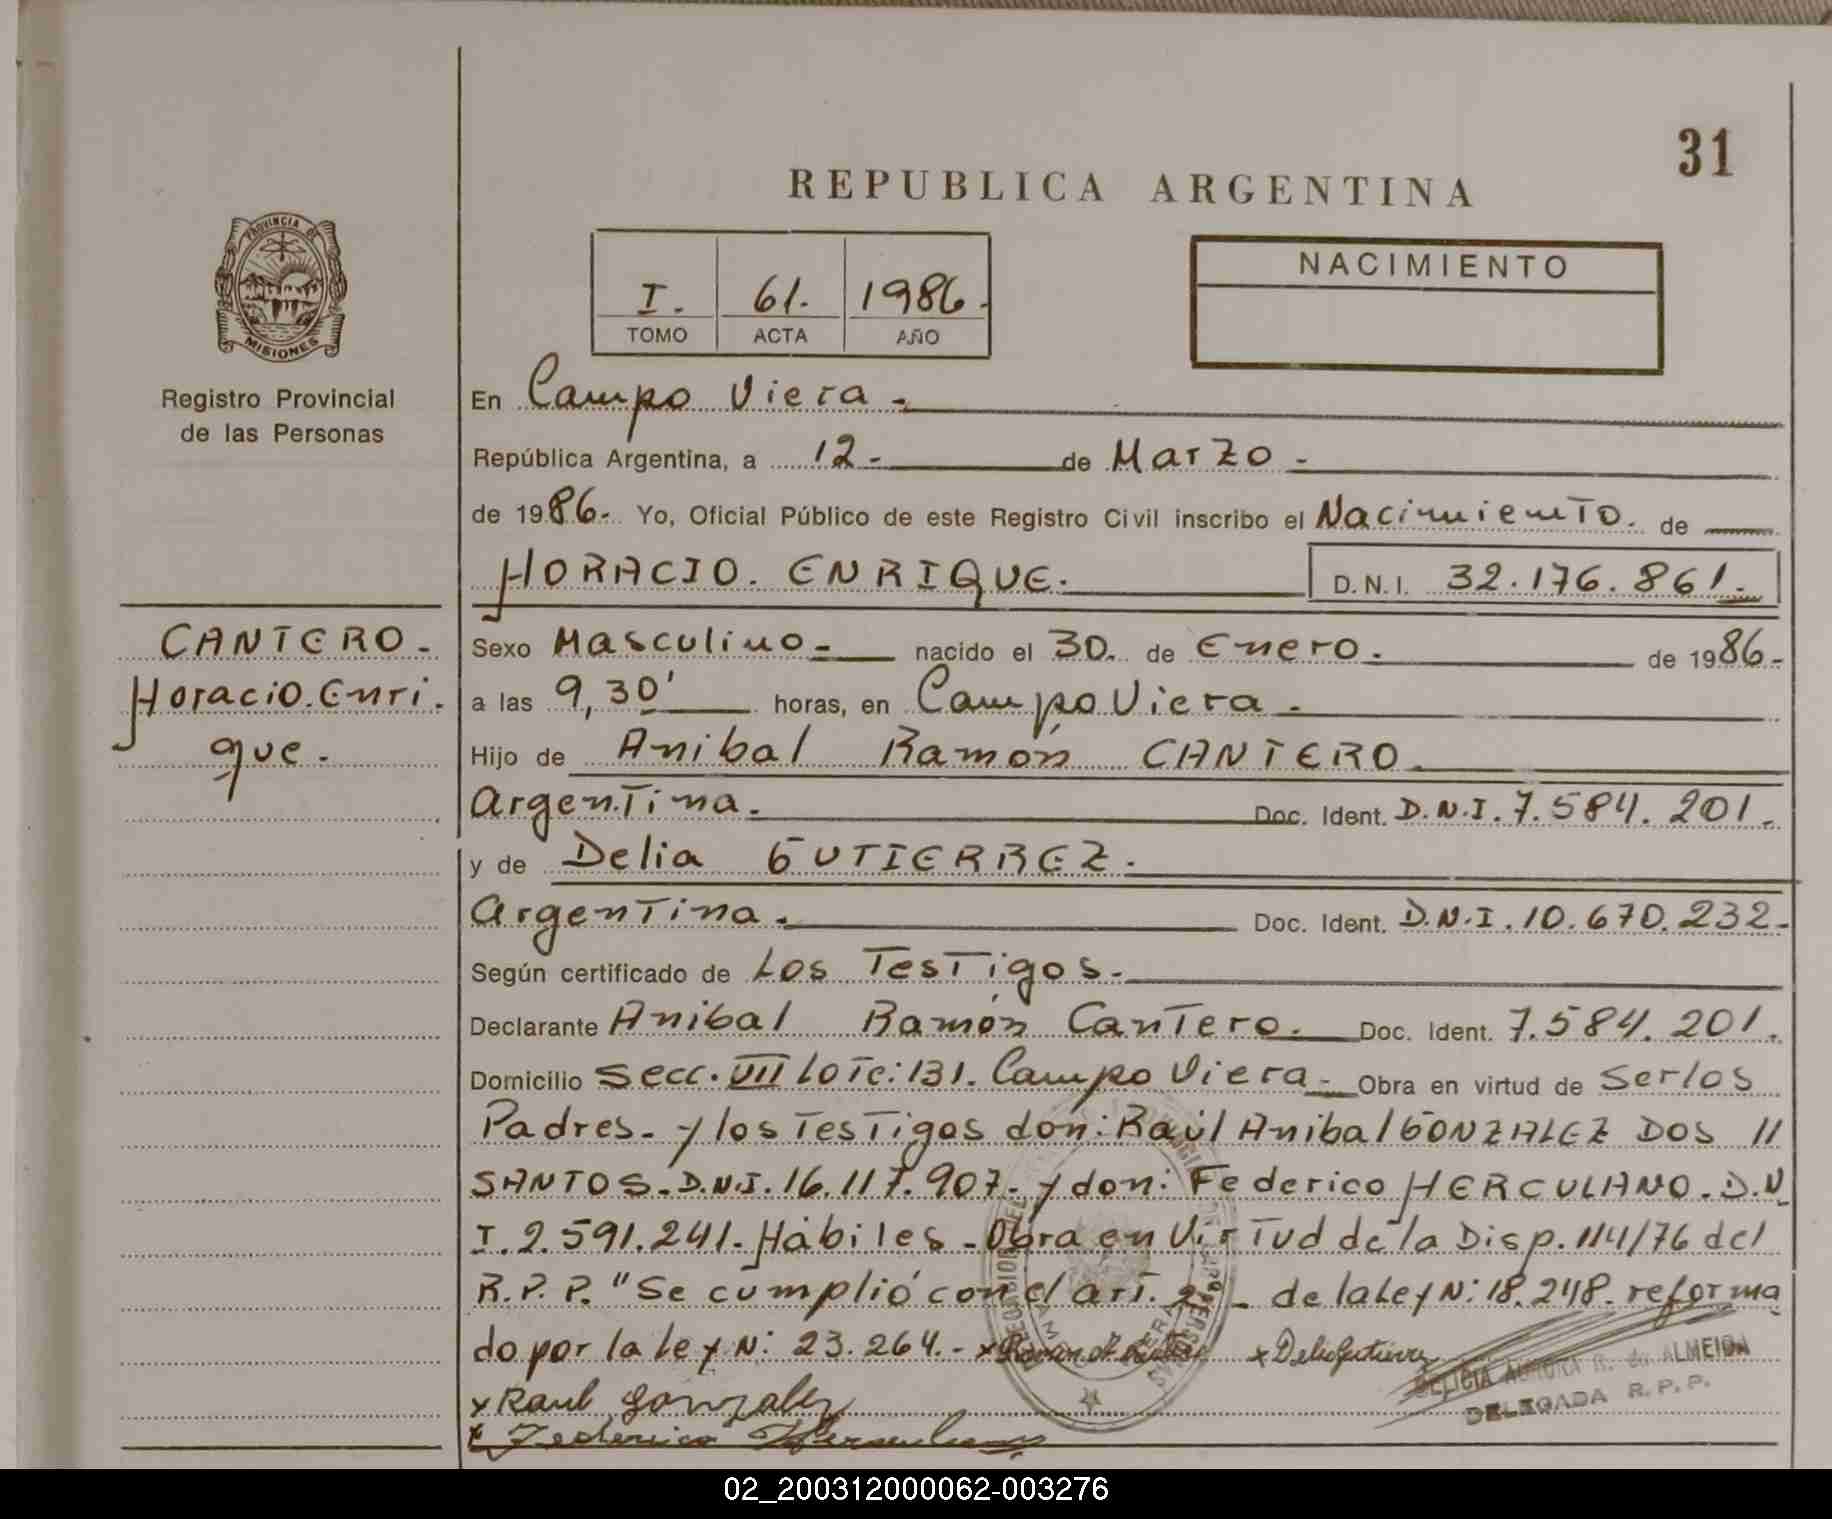 31
REPUBLICA ARGENTINA
PROVINCIA DE
MISIONES
Registro Provincial
de las Personas
I. 61. 1986.
TOMO ACTA AÑO
NACIMIENTO
En Campo Viera.
República Argentina, a 12. de Marzo.
de 1986. Yo, Oficial Público de este Registro Civil inscribo el Nacimiento. de
HORACIO. ENRIQUE. D.N.I. 32.176.861.
CANTERO.
Horacio.Enri.
que.
Sexo Masculino. nacido el 30. de Enero. de 1986.
a las 9,30' horas, en Campo Viera.
Hijo de Anibal Ramón CANTERO.
Argentina. Doc. Ident. D.N.I. 7.584.201.
y de Delia GUTIERREZ.
Argentina. Doc. Ident. D.N.I. 10.670.232.
Según certificado de Los Testigos.
Declarante Anibal Ramón Cantero. Doc. Ident. 7.584.201.
Domicilio Secc. VII Lote: 131. Campo Viera. Obra en virtud de Serlos
Padres. y los Testigos don: Raúl Anibal GONZALEZ DOS //
SANTOS. D.N.I. 16.117.907. y don: Federico HERCULANO. D.N.
I. 2.591.241. Hábiles. Obra en Virtud de la Disp. 114/76 del
R.P.P. "Se cumplió con el art. 2 de la Ley N: 18.248. reforma
do por la Ley N: 23.264. x x Delia Gutierrez
x Raul Gonzalez
x Federico Herculano
DELICIA AURORA R. de ALMEIDA
DELEGADA R.P.P.
02_200312000062-003276